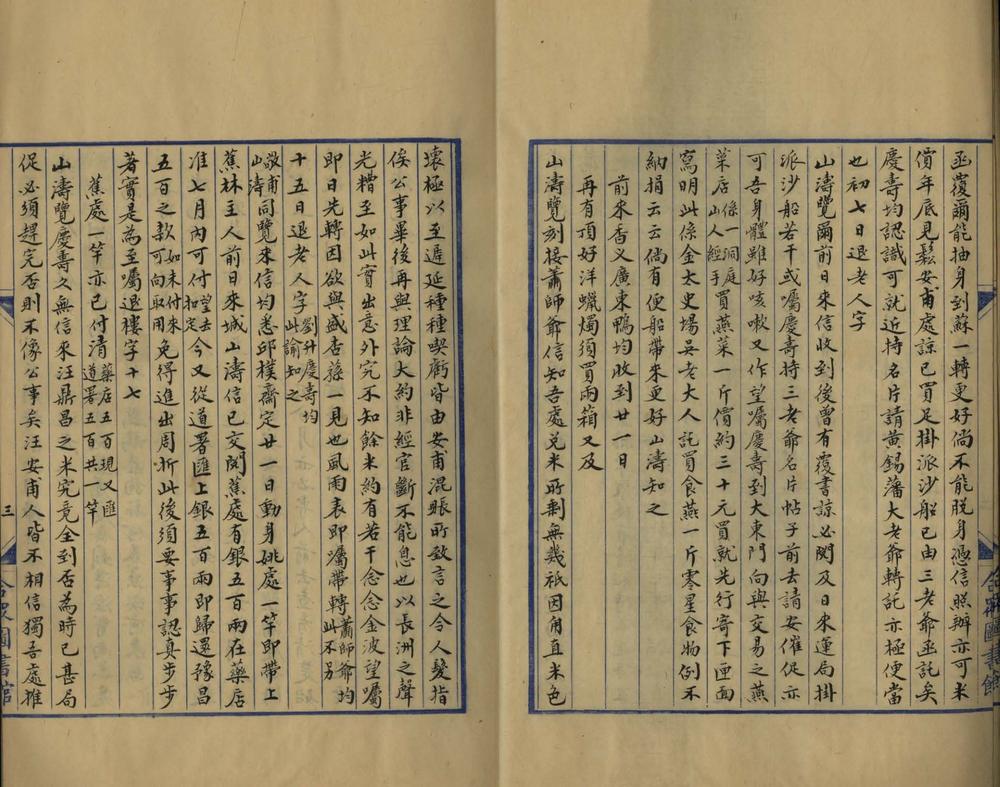 函覆爾能抽身到蘇一轉更好倘不能脫身憑信照辦亦可米
價年底見鬆安甫處諒已買足掛派沙船已由三老爺函託矣
慶壽均認識可就近持名片請黃錫藩大老爺轉託亦極便當
也初七日退老人字
山濤覽爾前日來信收到後曾有覆書諒必閱及日來運局掛
派沙船若干或囑慶壽持三老爺名片帖子前去請安催促亦
可吾身體雖好咳嗽又作望囑慶壽到大東門向與交易之燕
菜店係一洞庭山人經手買燕菜一斤價約三十元買就先行寄下匣面
寫明此係金太史場吳老大人託買食燕一斤零星食物例不
納捐云云倘有便船帶來更好山濤知之
前來香乂廣東鴨均收到廿一日
再有頂好洋蠟燭須買兩箱又及
山濤覽刻接蕭師爺信知吾處兌米所剩無幾祇因甪直米色
壞極以至遲延種種喫虧皆由安甫混賬所致言之令人髮指
俟公事畢後再與理論大約非經官斷不能息也以長洲之聲
光糟至如此實出意外究不知餘米約有若干念念金波望囑
即日先轉因欲與盛杏蓀一見也風雨表即囑帶轉蕭師爺均此不另
十五日退老人字劉升慶壽均此諭知之
敬甫山濤同覽來信均悉邱樸齋定廿一日動身姚處一竿即帶上
蕉林主人前日來城山濤信已交閱蕉處有銀五百兩在藥店
准七月內可付望去扣定今又從道署匯上銀五百兩即歸還豫昌
五百之款如未付來可向取用免得進出周折此後須要事事認真步步
著實是為至囑退樓字十七
蕉處一竿亦已付清藥店五百現又匯道署五百共一竿
山濤覽慶壽久無信來汪鼎昌之米究竟全到否為時已甚局
促必須趕完否則不像公事矣汪安甫人皆不相信獨吾處推
三
合眾圖書館